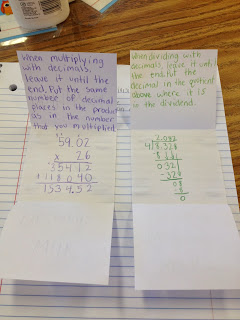 When multiplying
with decimals,
leave it until the
end. Put the same
number of decimal
places in the product
as in the number
that you multiplied.
59.02
x 26
35412
118040
1534.52
When dividing with
decimals, leave it until
the end. Put the
decimal in the quotient
above where it is
in the dividend.
2.082
4 8.328
032
32
08
8
0